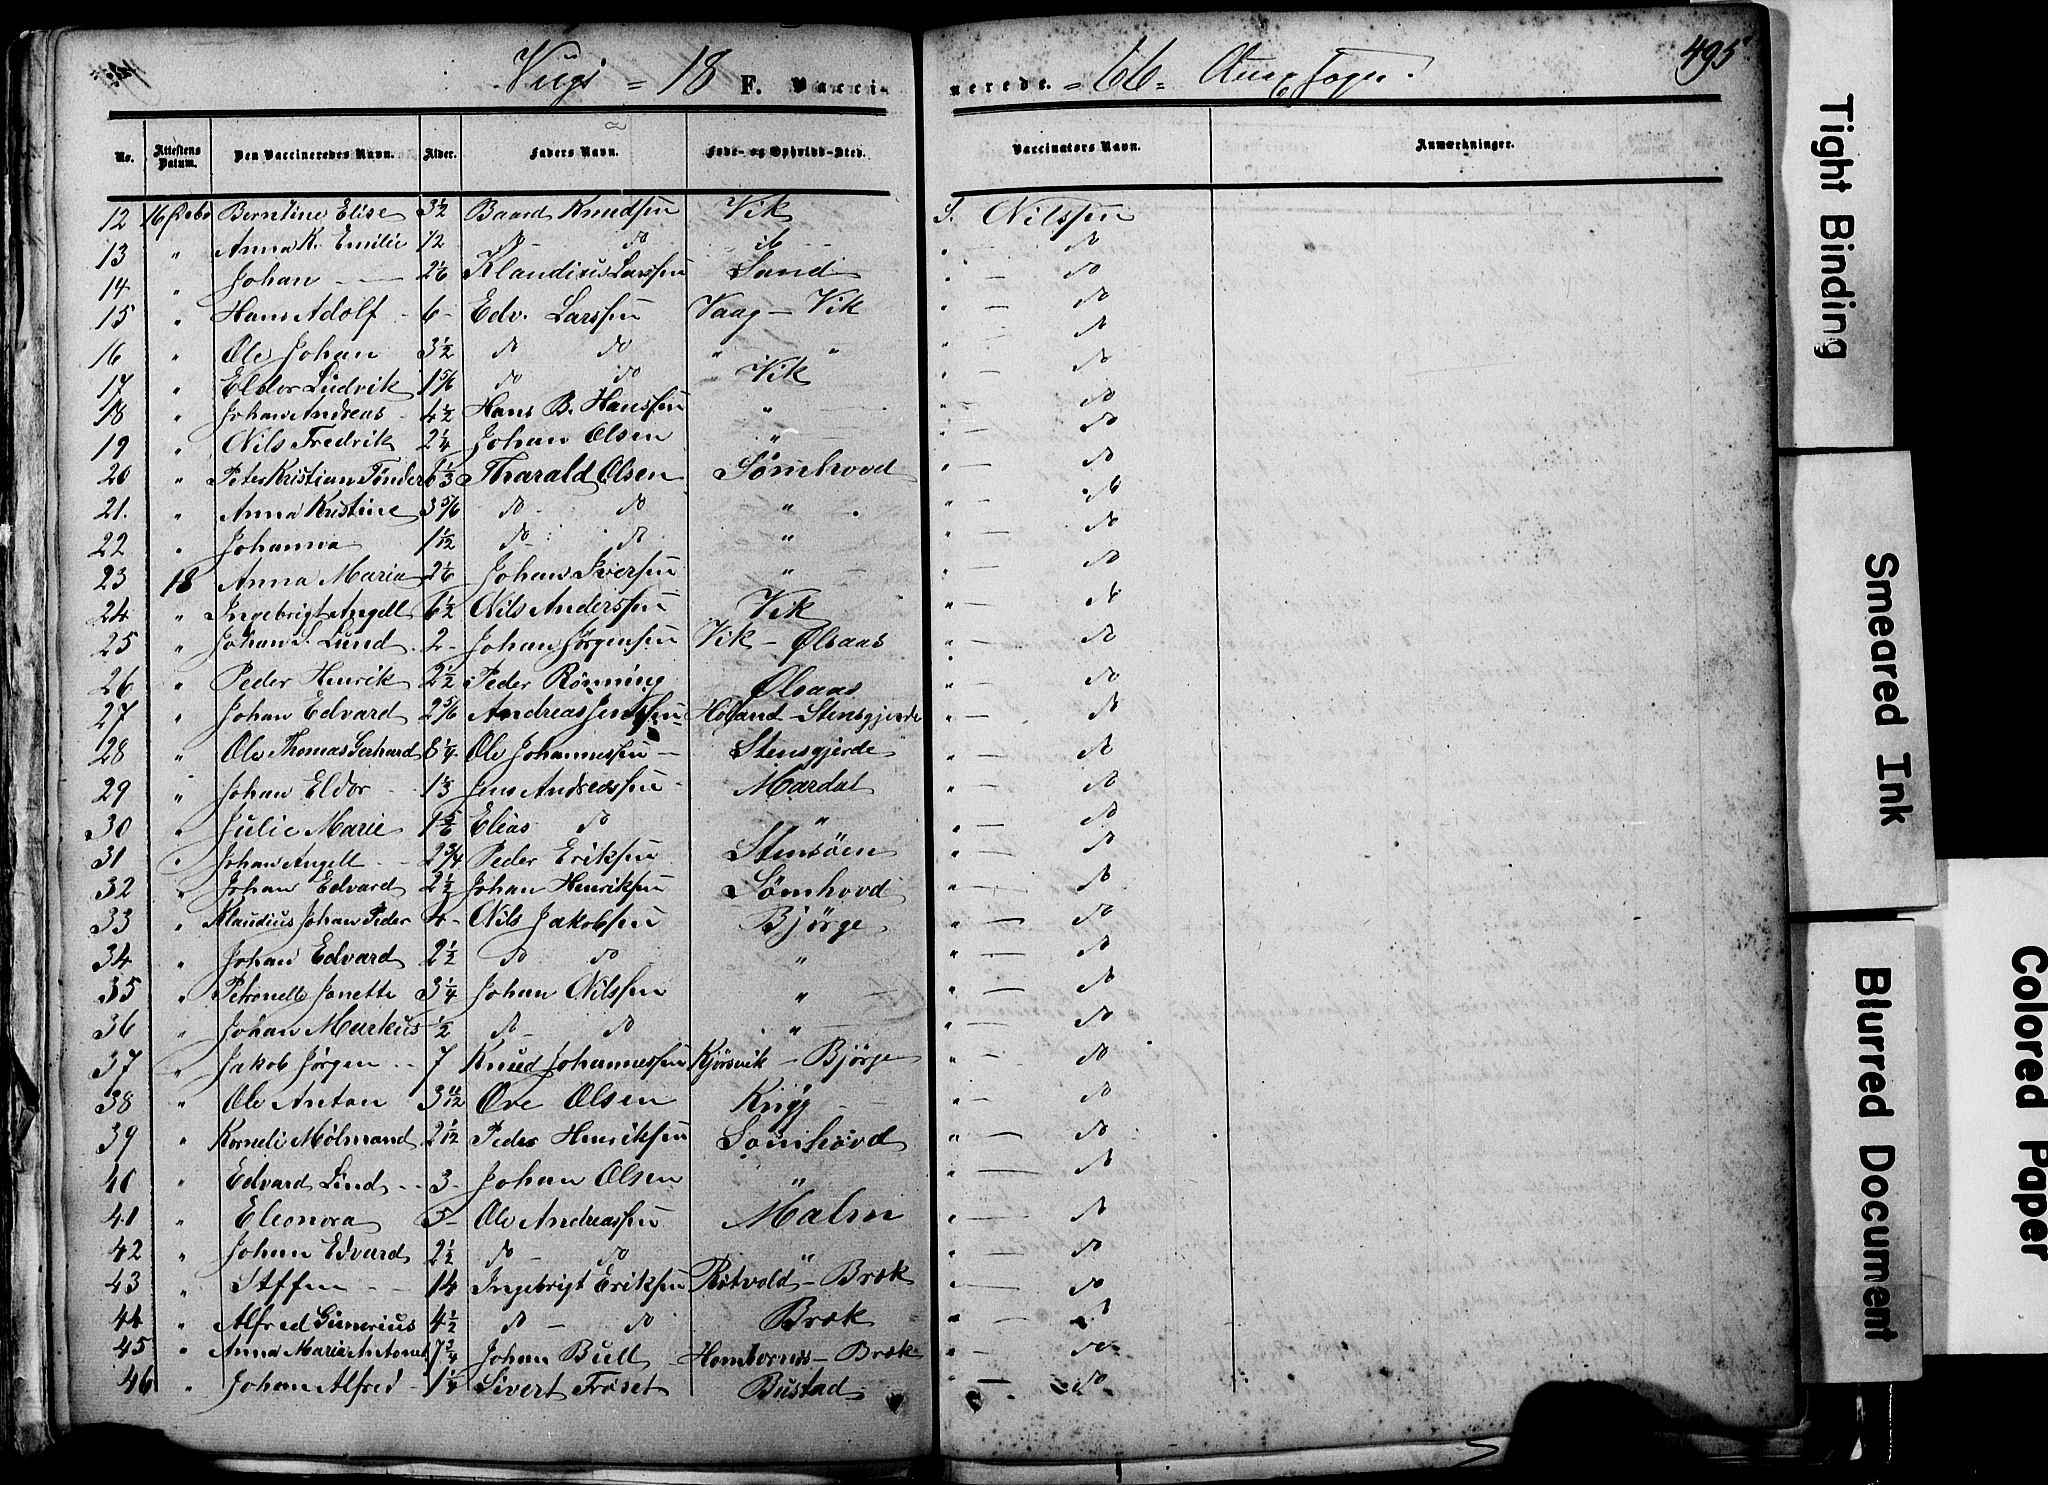 Viigs = 18 F. Vacci- nerede. = 66 = Aure Sogn. 495
No. Attestens Datum. Den Vaccineredes Navn. Alder. Faders Navn. Føde- og Opholds-Sted. Vaccinators Navn. Anmærkninger.
12 16 Octbr Berntine Elise 3 1/2 Baard Knudsen Vik S. Nilssen
13 " Anna K. Emilie 1/2 do - do ib " — do
14 " Johan 2 1/6 Klaudius Larssen Sand " — do
15 " Hans Adolf - 6 - Edv. Larssen Vaag - Vik " — do
16 " Ole Johan 3 1/2 do do " " " — do
17 " Eldor Ludvik 1 5/6 do do Vik " — do
18 " Johan Andreas 4 1/2 Hans B. Hanssen " " — do
19 " Nils Fredrik 2 1/4 Johan Olsen " " — do
20 " Peter Kristian Tönder 6 1/3 Tharald Olsen Sømhovd " — do
21. " Anna Kristine 3 5/6 do - do " " — do
22 " Johanna 1 1/12 do - do " " — do
23 18 Anna Maria 2 1/6 Johan Iversen " " — do
24 " Ingebrigt Angell 6 1/2 Nils Anderssen Vik " — do
25 " Johan S. Lund 2 - Johan Jørgensen Vik - Ølsaas " — do
26 " Peder Henrik 2 1/2 Peder Rönning Ølsaas " — do
27 " Johan Edvard 2 5/6 Andreas Jenssen Holand - Stensgjerde " — do
28 " Ole Thomas Gerhard 8 1/4 Ole Johannessen - Stensgjerde " — do
29 " Johan Eldor - 13 Jens Andreassen - Mardal " — do
30 " Julie Marie 1 5/6 Elias do " " — do
31 " Johan Angell - 2 3/4 Peder Eriksen Stensöen " — do
32 " Johan Edvard 2 1/2 Johan Henriksen Sømhovd " — do
33 " Klaudius Johan Peder 4 - Nils Jakobsen Bjørge " — do
34 " Johan Edvard 2 1/2 do do " " — do
35 " Petronelle Janette 3 1/4 Johan Nilssen " " — do
36 " Johan Markus 1/2 do - do " " — do
37 " Jakob Jörgen - 7 Knud Johannessen Kjørsvik - Bjørge " — do
38 " Ole Anton 3 11/12 Ove Olsen " — do
39 " Korneli Mölmand 2 1/12 Peder Henriksen Sömhovd " — do
40 " Edvard Lind - 3 - Johan Olsen " " — do
41 " Eleonora 5 - Ole Andreassen Malm " — do
42 " Johan Edvard 2 1/2 do - do " " — do
43 " Steffen - 14 Ingebrigt Eriksen Rotvold - Bræk " — do
44 " Alfred Gunerius 4 1/2 do - do Bræk " — do
45 " Anna Maria Antonet 7 3/4 Johan Bull Hombornes - Bræk " — do
46 " Johan Alfred - 1 1/4 Sivert Trøset Bustad " — do
Tight Binding
Smeared Ink
Blurred Document
Colored Paper